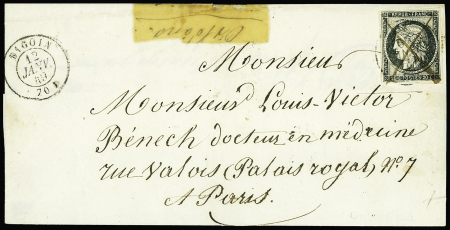 DIGOIN
12
JANV.
49
(70)
REPUB. FRANC.
20 POSTES 20
Monsieur
Monsieur Louis-Victor
Bénech docteur en médecine
rue Valois (Palais royal) N.º 7
A Paris.